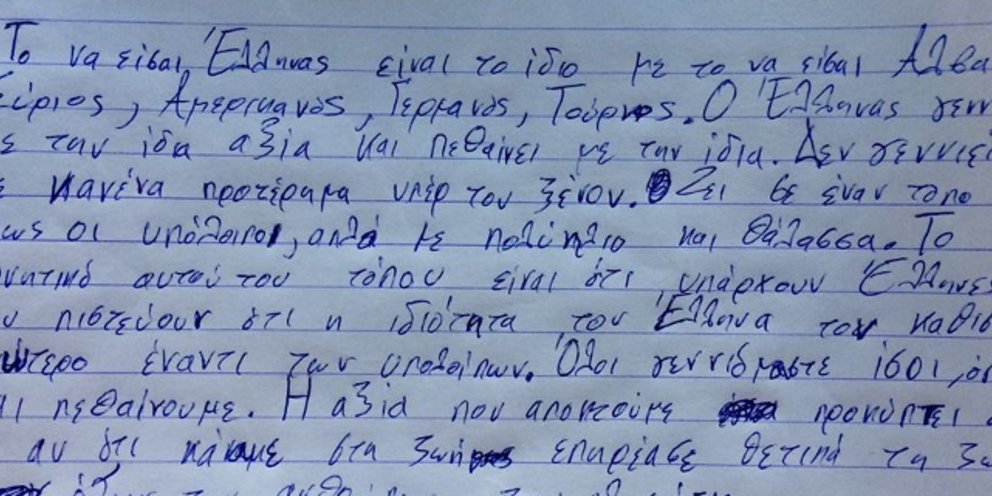 Το να είσαι Έλληνας είναι το ίδιο με το να είσαι Αλβα
ύριος, Αμερικανός, Γερμανός, Τούρκος. Ο Έλληνας γενν
ε την ίδια αξία και πεθαίνει με την ίδια. Δεν γεννιέ
ε κανένα προτέρημα υπέρ του ξένου. Ζει σε έναν τόπο
ως οι υπόλοιποι, απλά με πολύ ήλιο και θάλασσα. Το
νητικό αυτού του τόπου είναι ότι υπάρχουν Έλληνες
υ πιστεύουν ότι η ιδιότητα του Έλληνα τον καθισ
ώτερο έναντι των υπολοίπων. Όλοι γεννιόμαστε ίσοι, ό
αι πεθαίνουμε. Η αξία που αποκτούμε προκύπτει α
αν ότι κάναμε στη ζωή επηρέασε θετικά τη ζω